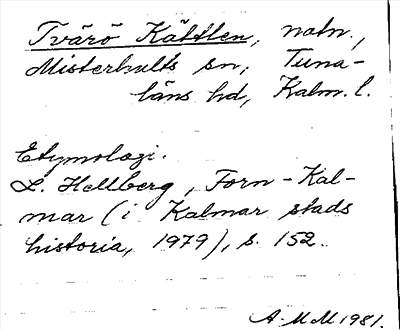 Tvärö Kättlen, natn.,
Misterhults sn, Tuna-
läns hd, Kalm. l.
Etymologi.
L. Hellberg, Forn-Kal-
mar (i Kalmar stads
historia, 1979), s. 152.
A-M M 1981.